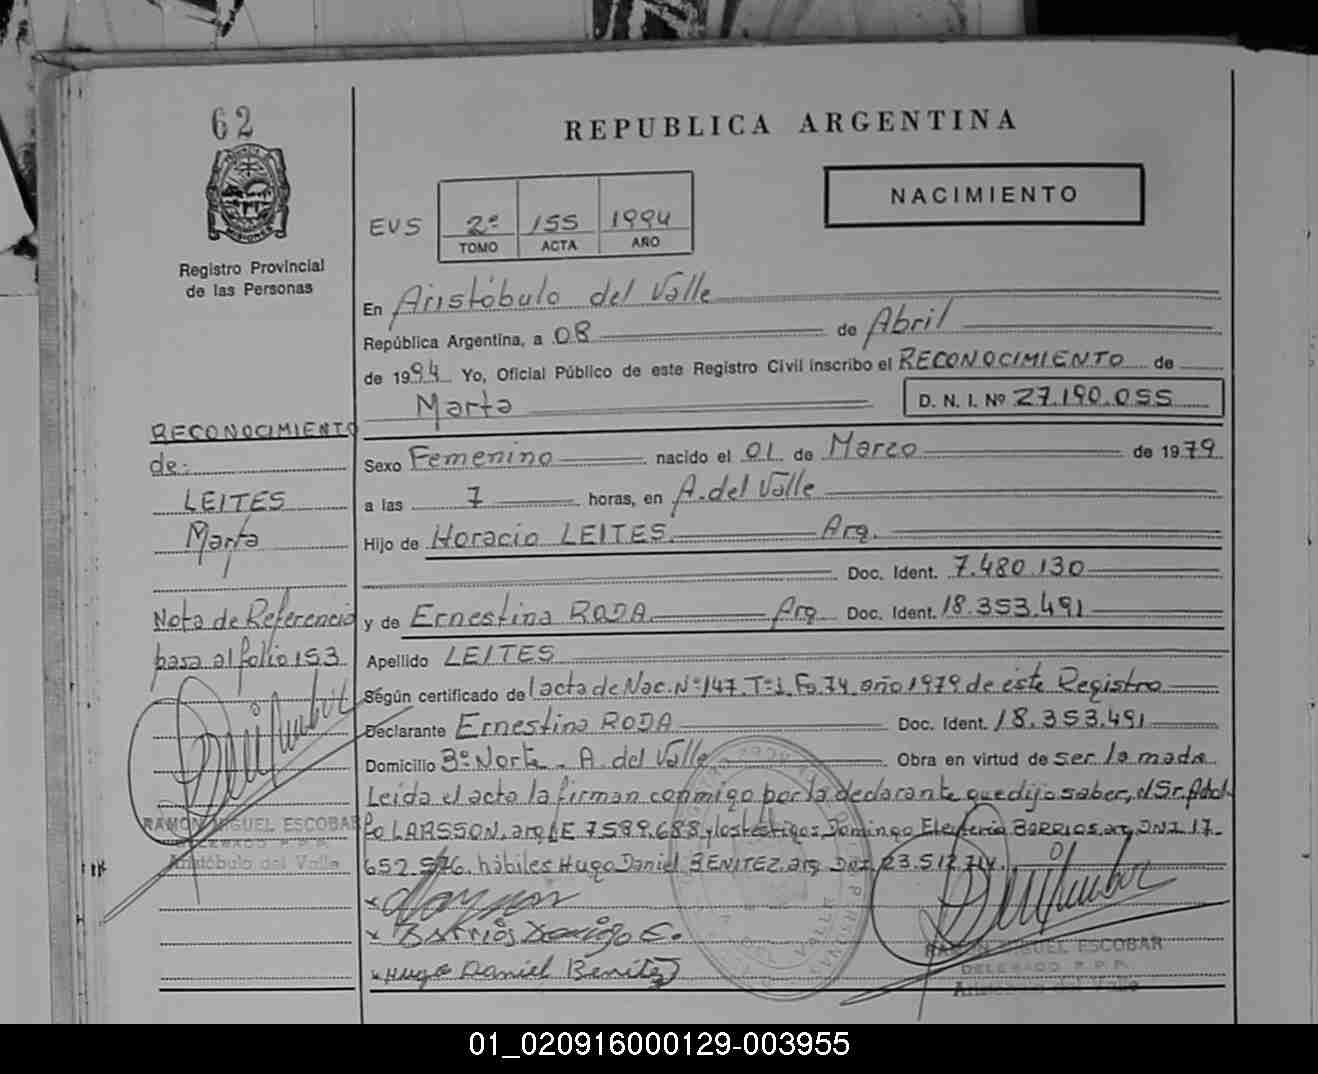 62
REPUBLICA ARGENTINA
NACIMIENTO
EVS 2º 155 1994
TOMO ACTA AÑO
Registro Provincial
de las Personas
En Aristóbulo del Valle
República Argentina, a 08 de Abril
de 1994 Yo, Oficial Público de este Registro Civil inscribo el RECONOCIMIENTO de
Marta D. N. I. Nº 27.190.055
RECONOCIMIENTO
de:
LEITES
Marta
Nota de Referencia
pasa al folio 153
RAMON MIGUEL ESCOBAR
DELEGADO R.P.P.
Aristóbulo del Valle
Sexo Femenino nacido el 01 de Marzo de 1979
a las 7 horas, en A. del Valle
Hijo de Horacio LEITES. Arg.
Doc. Ident. 7.480.130
y de Ernestina RODA Arg. Doc. Ident. 18.353.491
Apellido LEITES
Según certificado de l acta de Nac. Nº 147 Tº 1 Fo 74 año 1979 de este Registro
Declarante Ernestina RODA Doc. Ident. 18.353.491
Domicilio 3º Norte - A. del Valle Obra en virtud de ser la madre
Leida el acta la firman conmigo por la declarante que dijo saber, el Sr. Adol-
fo LARSSON, arg. LE 7.589.688 y los testigos Domingo Eleuterio BARRIOS, arg. DNI. 17.
652.576. hábiles Hugo Daniel BENITEZ. arg. DNI. 23.512.714.
x Barrios Domingo E.
x Hugo Daniel Benitez
RAMON MIGUEL ESCOBAR
DELEGADO R.P.P.
Aristóbulo del Valle
01_020916000129-003955